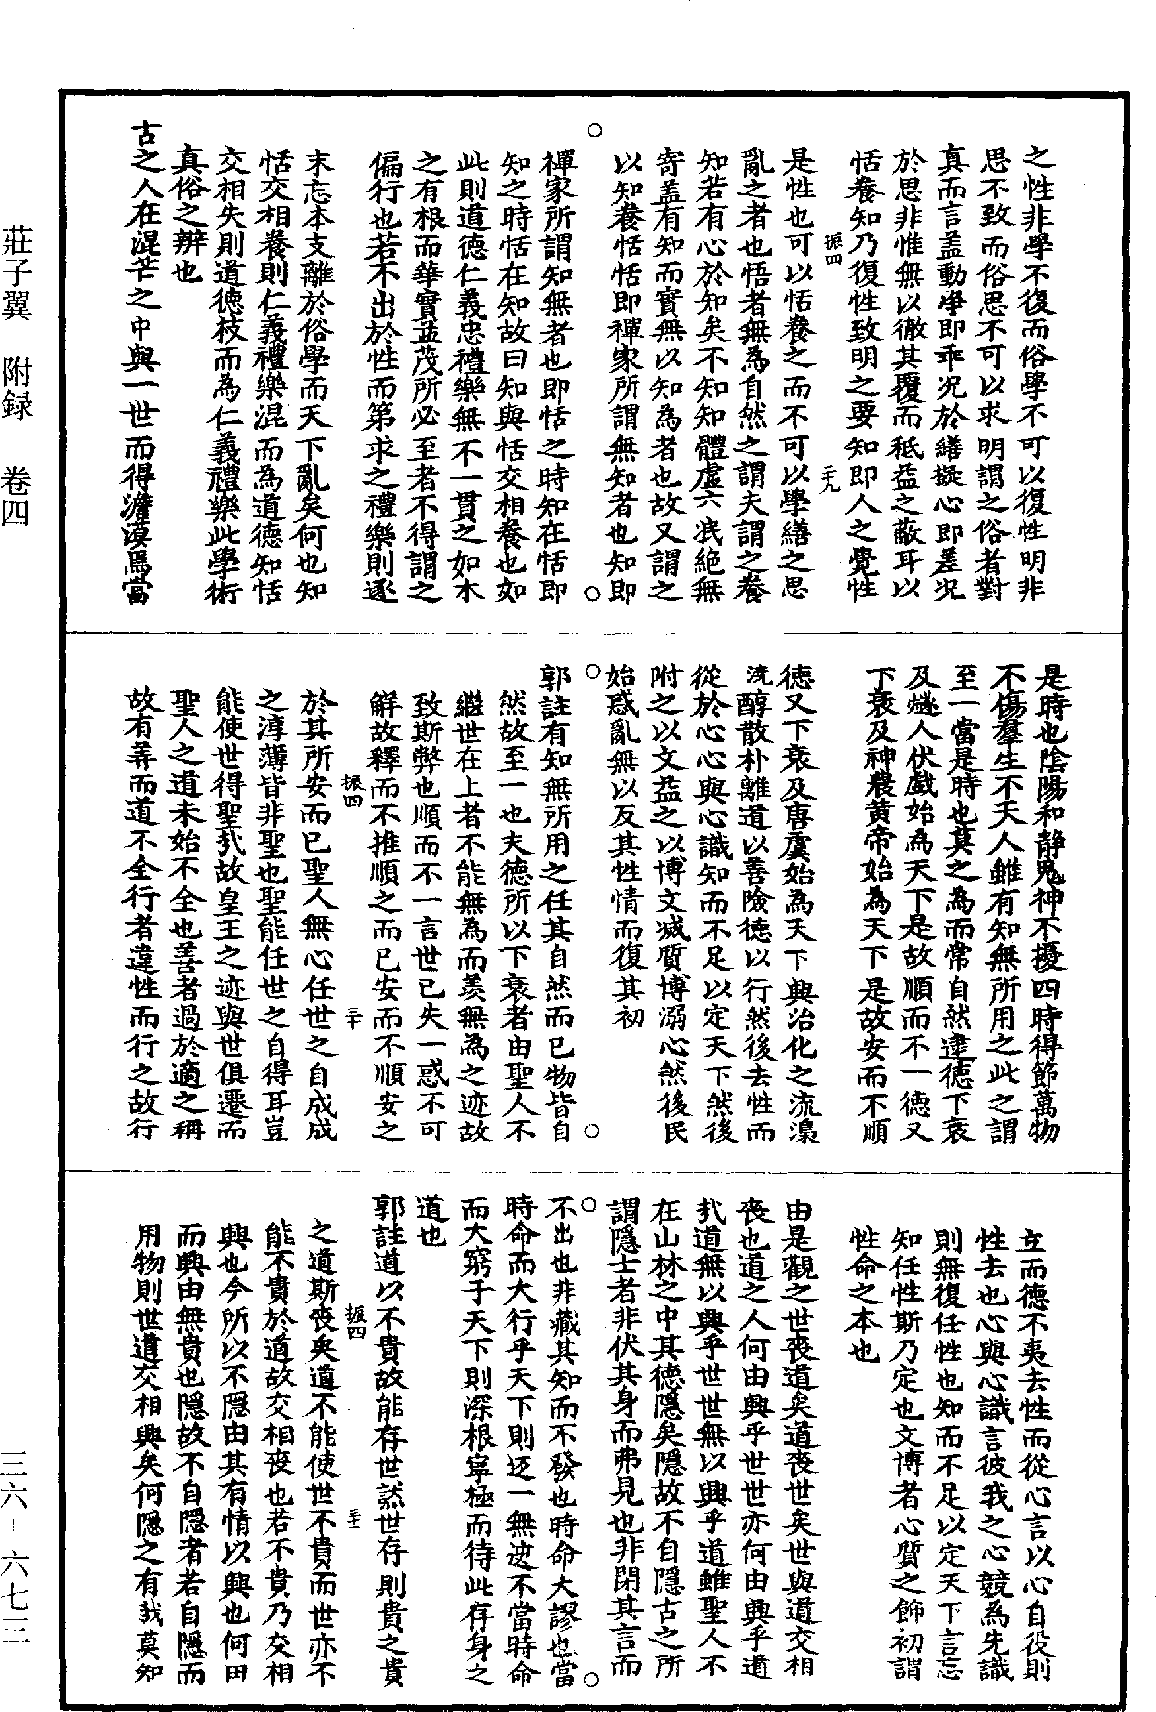 之性非學不復而俗學不可以復性明非
思不致而俗思不可以求明謂之俗者對
真而言盖動淨即乖况於繕擬心即差况
於思非惟無以徹其覆而秪益之蔽耳以
恬養知乃復性致明之要知即人之覺性
振四
二九
是性也可以恬養之而不可以學繕之思
亂之者也悟者無為自然之謂夫謂之養
知若有心於知矣不知知體虛六泯絕無
寄盖有知而實無以知為者也故又謂之
以知養恬恬即禪家所謂無知者也知即
禪家所謂知無者也即恬之時知在恬即
知之時恬在知故曰知與恬交相養也如
此則道德仁義忠禮樂無不一貫之如木
之有根而華實益茂所必至者不得謂之
偏行也若不出於性而第求之禮樂則逐
末忘本支離於俗學而天下亂矣何也知
恬交相養則仁義禮樂混而為道德知恬
交相失則道德枝而為仁義禮樂此學術
真俗之辨也
古之人在混芒之中與一世而得澹漠焉當
是時也陰陽和靜鬼神不擾四時得節萬物
不傷羣生不夭人雖有知無所用之此之謂
至一當是時也莫之為而常自然逮德下衰
及燧人伏戲始為天下是故順而不一德又
下衰及神農黄帝始為天下是故安而不順
德又下衰及唐虞始為天下興治化之流澆
淳散朴離道以善險德以行然後去性而
從於心心與心識知而不足以定天下然後
附之以文益之以博文滅質博溺心然後民
始惑亂無以反其性情而復其初
郭註有知無所用之任其自然而已物皆自
然故至一也夫德所以下衰者由聖人不
繼世在上者不能無為而羨無為之迹故
致斯弊也順而不一言世已失一惑不可
解故釋而不推順之而已安而不順安之
振四
三十
於其所安而已聖人無心任世之自成成
之淳薄皆非聖也聖能任世之自得耳豈
能使世得聖㦲故皇王之迹與世俱遷而
聖人之道未始不全也善者過於適之稱
故有弄而道不全行者違性而行之故行
立而德不夷去性而從心言以心自役則
性去也心與心識言彼我之心競為先識
則無復任性也知而不足以定天下言忘
知任性斯乃定也文博者心質之飾初謂
性命之本也
由是觀之世喪道矣道喪世矣世與道交相
喪也道之人何由興乎世世亦何由興乎道
㦲道無以興乎世世無以興乎道雖聖人不
在山林之中其德隱矣隱故不自隱古之所
謂隱士者非伏其身而弗見也非閉其言而
不出也非藏其知而不發也時命大謬也當
時命而大行乎天下則返一無迹不當時命
而大窮乎天下則深根寧極而待此存身之
道也
郭註道以不貴故能存世然世存則貴之貴
振四
三十一
之道斯喪矣道不能使世不貴而世亦不
能不貴於道故交相喪也若不貴乃交相
興也今所以不隱由其有情以興也何由
而興由無貴也隱故不自隱者若自隱而
用物則世道交相興矣何隱之有㦲莫知
莊子翼　附録　卷四
三六-六七三